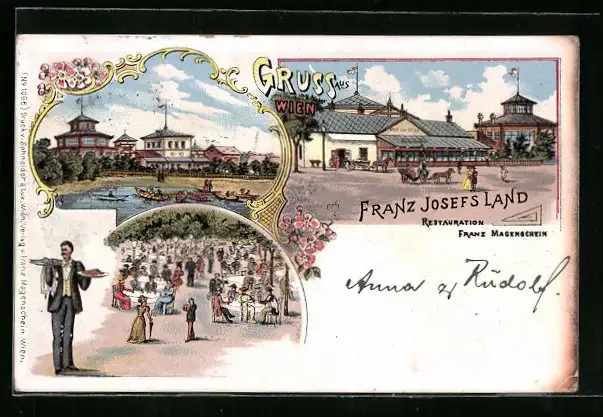 GRUSS AUS
WIEN
FRANZ JOSEFS LAND
RESTAURATION
FRANZ MAGENSCHEIN
Anna & Rudolf.
(No 1066) Druck v. Schneider & Lux, Wien, Verlag v. Franz Magenschein Wien.